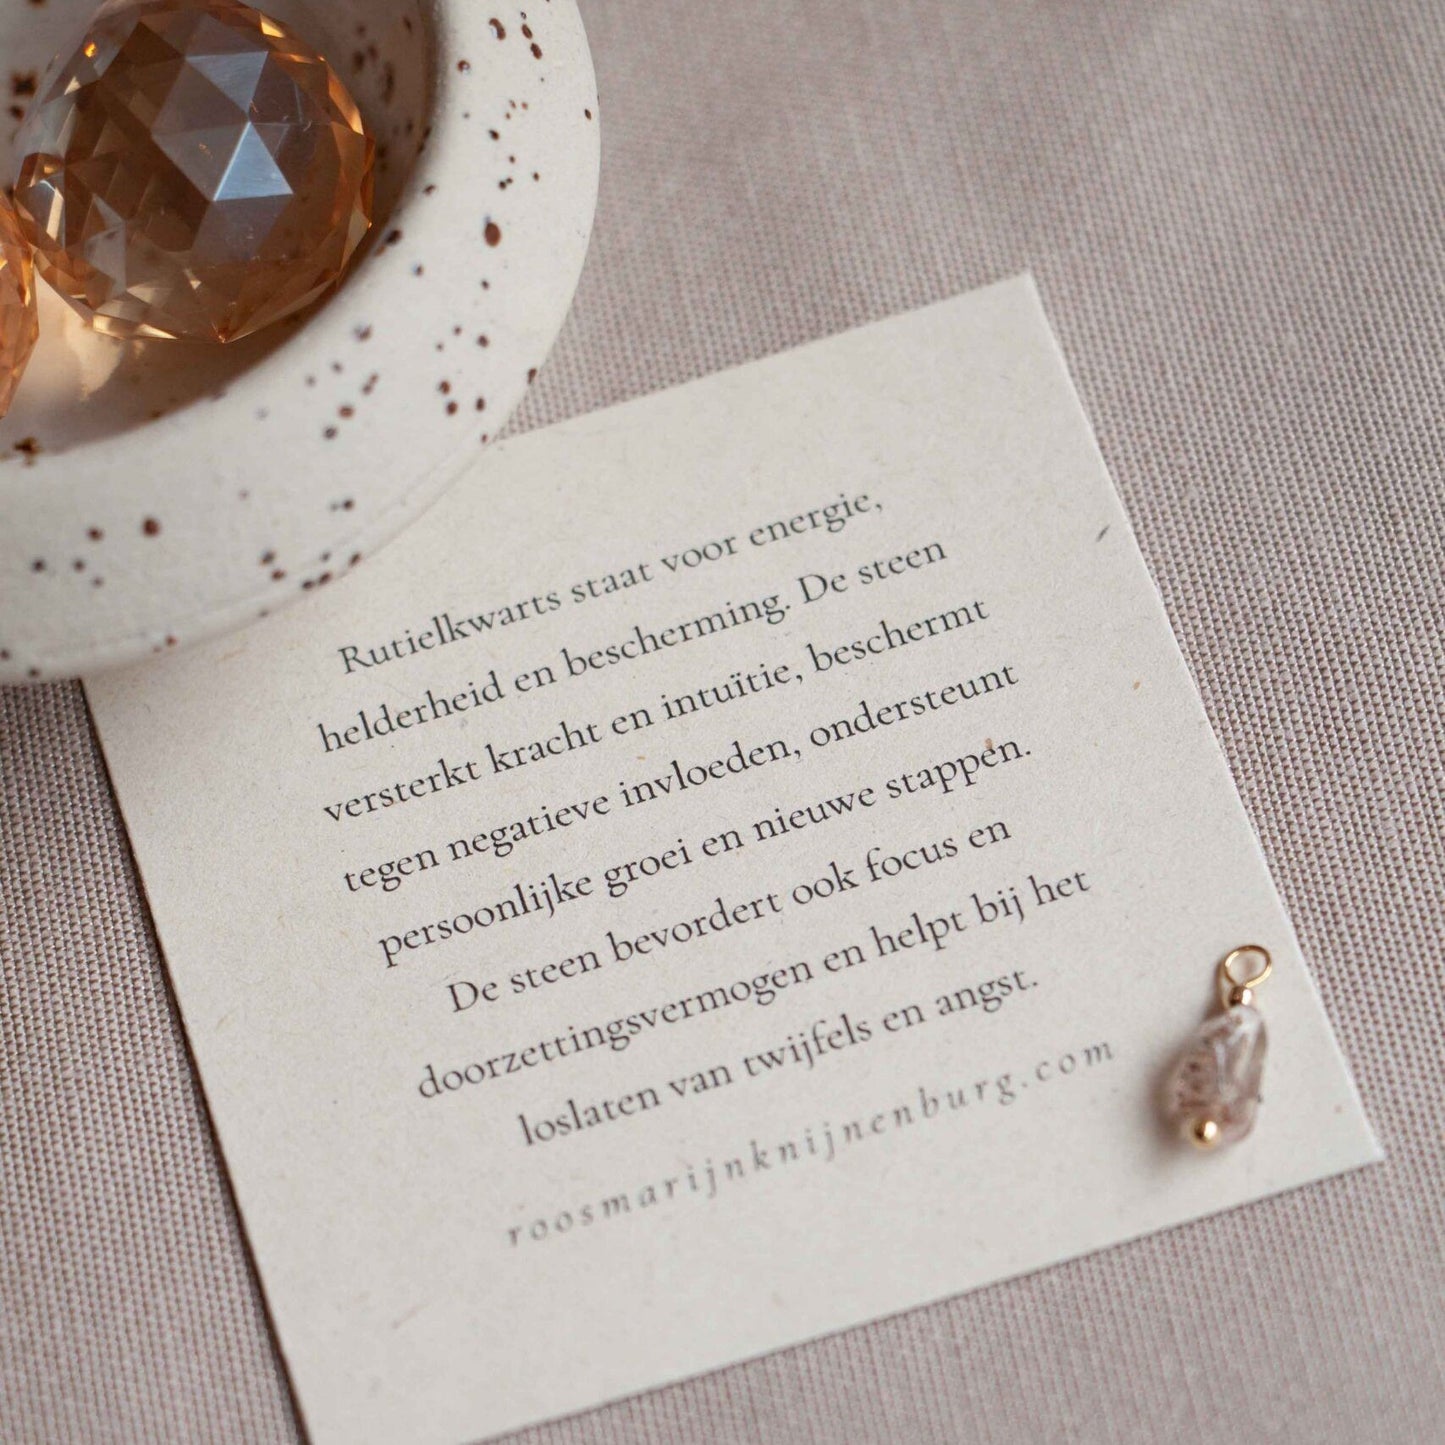 Rutielkwarts staat voor energie,
helderheid en bescherming. De steen
versterkt kracht en intuïtie, beschermt
tegen negatieve invloeden, ondersteunt
persoonlijke groei en nieuwe stappen.
De steen bevordert ook focus en
doorzettingsvermogen en helpt bij het
loslaten van twijfels en angst.
roosmarijnknijnenburg.com